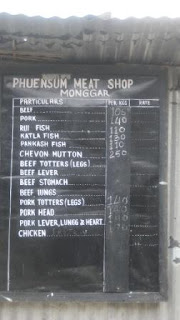 PHUENSUM MEAT SHOP
MONGGAR
PARTICULARS PER KG RATE
BEEF
PORK 140
RUI FISH 110
KATLA FISH 130
PANKASH FISH 110
CHEVON MUTTON 250
BEEF TOTTERS (LEGS)
BEEF LEVER
BEEF STOMACH
BEEF WINGS
PORK TOTTERS (LEGS) 140
PORK HEAD
PORK LEVER, LUNGS & HEART
CHICKEN